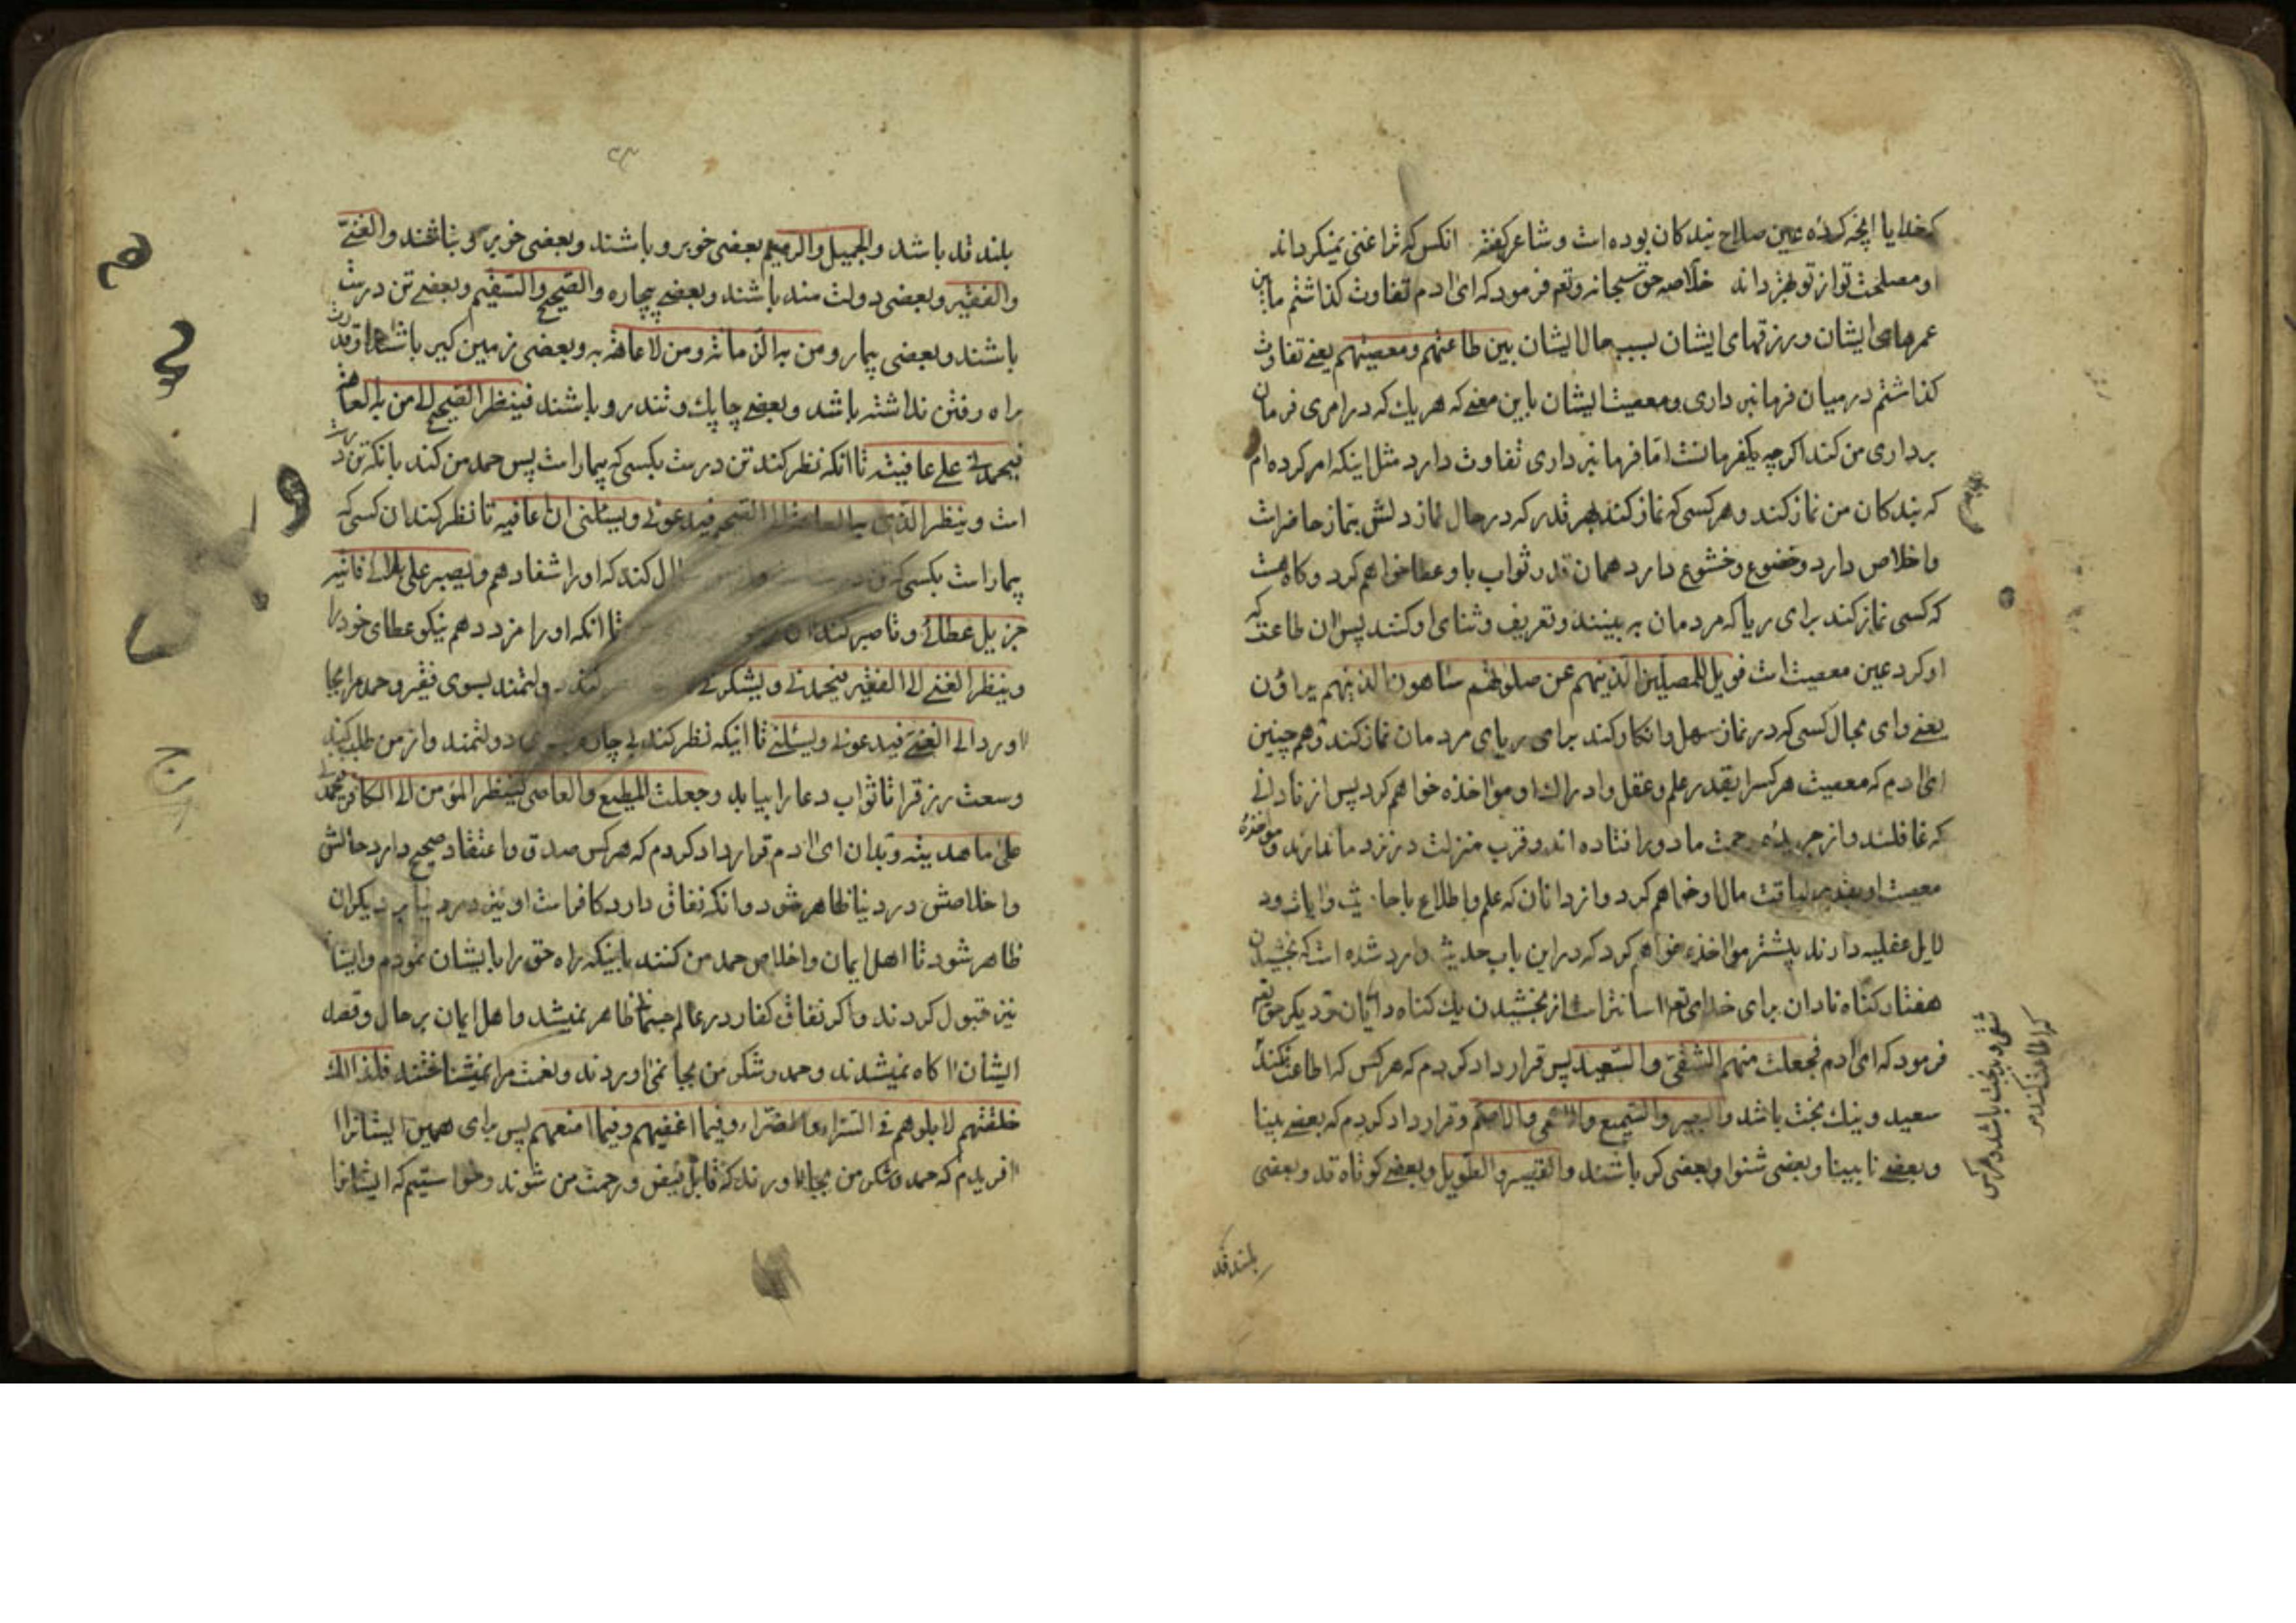 کخدایا انچه کرده عین صلاح بندکان بوده است و شاعر کفته انکس که ترا غنی نمیکرداند
او مصلحت تو از تو بهتر داند خلاصه حق سبحانه وتعم فرمود که ای ادم تفاوت کذاشتم مابین
عمرهای ایشان و رزقهای ایشان بسبب حال ایشان بین طاعتهم ومعصیتهم یعنی تفاوت
کذاشتم در میان فرمانبرداری ومعصیت ایشان باین معنی که هر یك که در امری فرمان
برداری من کند اکرچه یکفرمانست اما فرمانبرداری تفاوت دارد مثل اینکه امر کرده ام
که بندکان من نماز کنند و هر کسی که نماز کند بهر قدر که در حال نماز دلش بنماز حاضر است
و اخلاص دارد و خضوع و خشوع دارد همان قدر ثواب باو عطا خواهم کرد و کاه هست
که کسی نماز کند برای ریا که مردمان به بینند و تعریف و ثنای او کنند پس ان طاعت که
او کرد عین معصیت است فویل للمصلین الذینهم عن صلوتهم ساهون الذینهم یراؤن
یعنی وای بحال کسی که در نماز سهل وانکار کند برای ریای مردمان نماز کند و هم چنین
ای ادم که معصیت هر کسرا بقدر علم و عقل و ادراك او مؤاخذه خواهم کرد پس از نادانی
که غافلند و از جریده رحمت ما دور افتاده اند و قرب منزلت در نزد ما ندارند و مؤاخذهٔ
معصیت او بقدر لیاقت حال او خواهم کرد و از دانان که علم و اطلاع باحادیث و ایات و د
لایل عقلیه دارند بیشتر مؤاخذه خواهم کرد که در این باب حدیث وارد شده است که بخشیدن
هفتاد کناه نادان برای خدای تعم اسانتر است از بخشیدن یك کناه دانایان و دیکر حق تعم
فرمود که ای ادم فجعلت منهم الشقی والسعید پس قرار داد کردم که هر کس که اطاعت کند
سعید و نیك بخت باشد والبصیر والسمیع والاعمی والاصم و قرار داد کردم که بعضی بینا
و بعضی نابینا و بعضی شنوا و بعضی کر باشند والقصیر والطویل و بعضی کوتاه قد و بعضی
شقی و بدبخت باشد و هرکس
که اطاعت نکند
بلند قد
بلند قد باشد والجمیل والرمیم بعضی خوبرو باشند و بعضی خوبرو نباشند والغنی
والفقیر و بعضی دولت مند باشند و بعضی بیچاره والصحیح والسقیم و بعضی تن درست
باشند و بعضی بیمار ومن به الزمانة ومن لا عاهة به و بعضی زمین کیر باشند وقدرت
راه رفتن نداشته باشد و بعضی چابك و تندرو باشند فینظر الصحیح الی من به العاهة
فیحمدنی علی عافیته تا انکه نظر کند تن درست بکسی که بیمار است پس حمد من کند بانکه تن درست
است و ینظر الذی به العاهة الی الصحیح فیدعونی ویسئلنی ان اعافیه تا نظر کند ان کسی که
بیمار است بکسی که کند که او را شفا دهم ویصبر علی بلائی فاثیبه
جزیل عطائی و تا صبر کند ان تا انکه او را مزد دهم نیکو عطای خود را
وینظر الغنی الی الفقیر فیحمدنی ویشکرنی کند دولتمند بسوی فقیر و حمد مرا بجا
اورد الی الغنی فیدعونی ویسئلنی تا اینکه نظر کند بی چاره بسوی دولتمند و از من طلب کند
وسعت رزق را تا ثواب دعا را بیابد وجعلت المطیع والعاصی لینظر المؤمن الی الکافر فیحمدنی
علی ما هدیته و بدان ای ادم قرار داد کردم که هر کس صدق و اعتقاد صحیح دارد حالش
و اخلاصش در دنیا ظاهر شود و انکه نفاق دارد کافر است او نیز در دنیا بر دیکران
ظاهر شود تا اهل ایمان و اخلاص حمد من کنند باینکه راه حق را بایشان نمودم و ایشان
نیز قبول کردند و اکر نفاق کفار در عالم ظاهر نمیشد و اهل ایمان بر حال وقصد
ایشان اکاه نمیشدند و حمد و شکر من بجا نمی اوردند و نعمت مرا نمیشناختند فلذالك
خلقتهم لابلوهم فی السراء والضراء وفیما اعفیهم وفیما امنعهم پس برای همین ایشانرا
افریدم که حمد و شکر من بجا اورند که قابل فیض و رحمت من شوند و خواستیم که ایشانرا